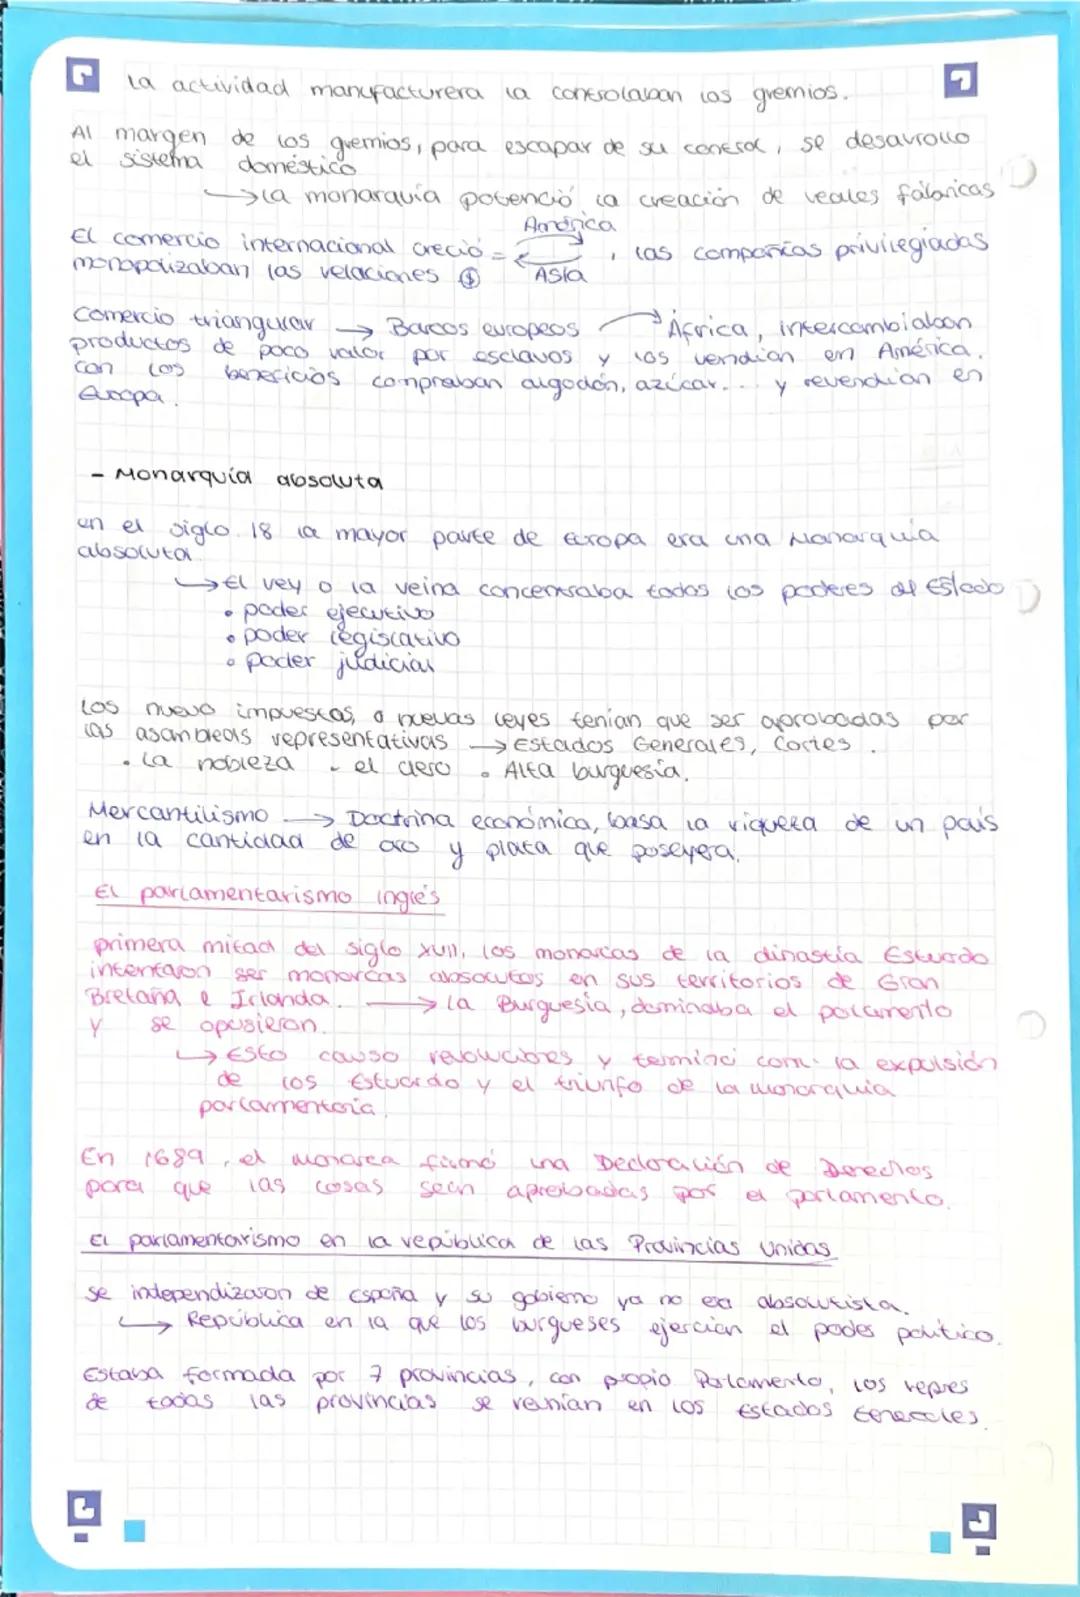 La actividad manufacturera la controlaban los gremios.
Al margen de los gremios, para escapar de su control, se desarrollo
el sistema doméstico
→ La monarquía potenció la creación de reales fábricas
América
El comercio internacional creció = , las compañías privilegiadas
monopolizaban las relaciones $ Asia
Comercio triangular → Barcos europeos → África, intercambiaban
productos de poco valor por esclavos y los vendían en América.
Con los beneficios compraban algodón, azúcar... y revendían en
Europa.
- Monarquía absoluta
en el siglo 18 la mayor parte de Europa era una Monarquía
absoluta
→ El rey o la reina concentraba todos los poderes del Estado
• poder ejecutivo
• poder legislativo
• poder judicial
Los nuevo impuestos, o nuevas leyes tenían que ser aprobadas por
las asambleas representativas → Estados Generales, Cortes.
• La nobleza • el clero • Alta burguesía.
Mercantilismo → Doctrina económica, basa la riqueza de un país
en la cantidad de oro y plata que poseyera.
El parlamentarismo inglés
primera mitad del siglo XVII, los monarcas de la dinastía Estuardo
intentaron ser monarcas absolutos en sus territorios de Gran
Bretaña e Irlanda. → La Burguesía, dominaba el parlamento
y se opusieron.
→ Esto causo revoluciones y terminó con la expulsión
de los Estuardo y el triunfo de la monarquía
parlamentaria.
En 1689, el monarca firmó una Declaración de Derechos
para que las cosas sean aprobadas por el parlamento.
El parlamentarismo en la república de las Provincias Unidas
se independizaron de España y su gobierno ya no era absolutista.
→ República en la que los burgueses ejercían el poder político.
Estaba formada por 7 provincias, con propio Parlamento, los repres
de todas las provincias se reunían en los Estados Generales.